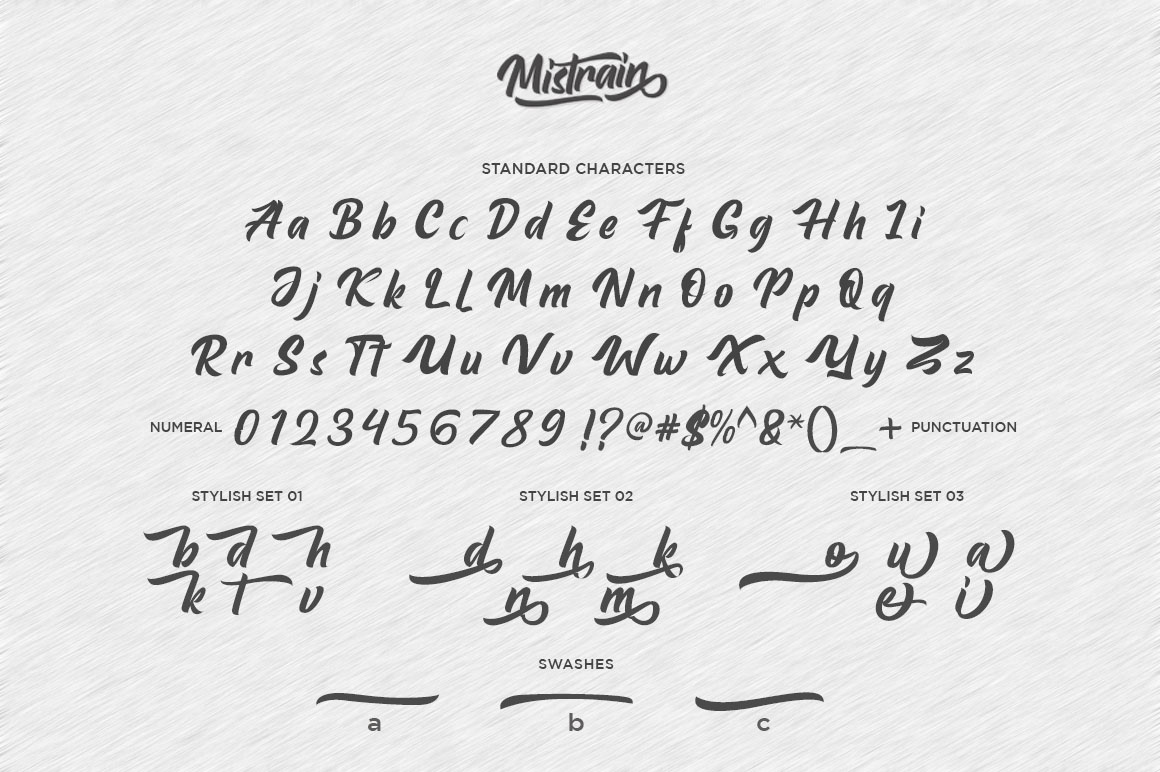 Mistrain
STANDARD CHARACTERS
Aa Bb Cc Dd Ee Ff Gg Hh Ii
Jj Kk Ll Mm Nn Oo Pp Qq
Rr Ss Tt Uu Vv Ww Xx Yy Zz
NUMERAL 0123456789 !?@#$%^&*()_+ PUNCTUATION
STYLISH SET 01 STYLISH SET 02 STYLISH SET 03
b d h d h k o u a
k t v n m e i
SWASHES
a b c